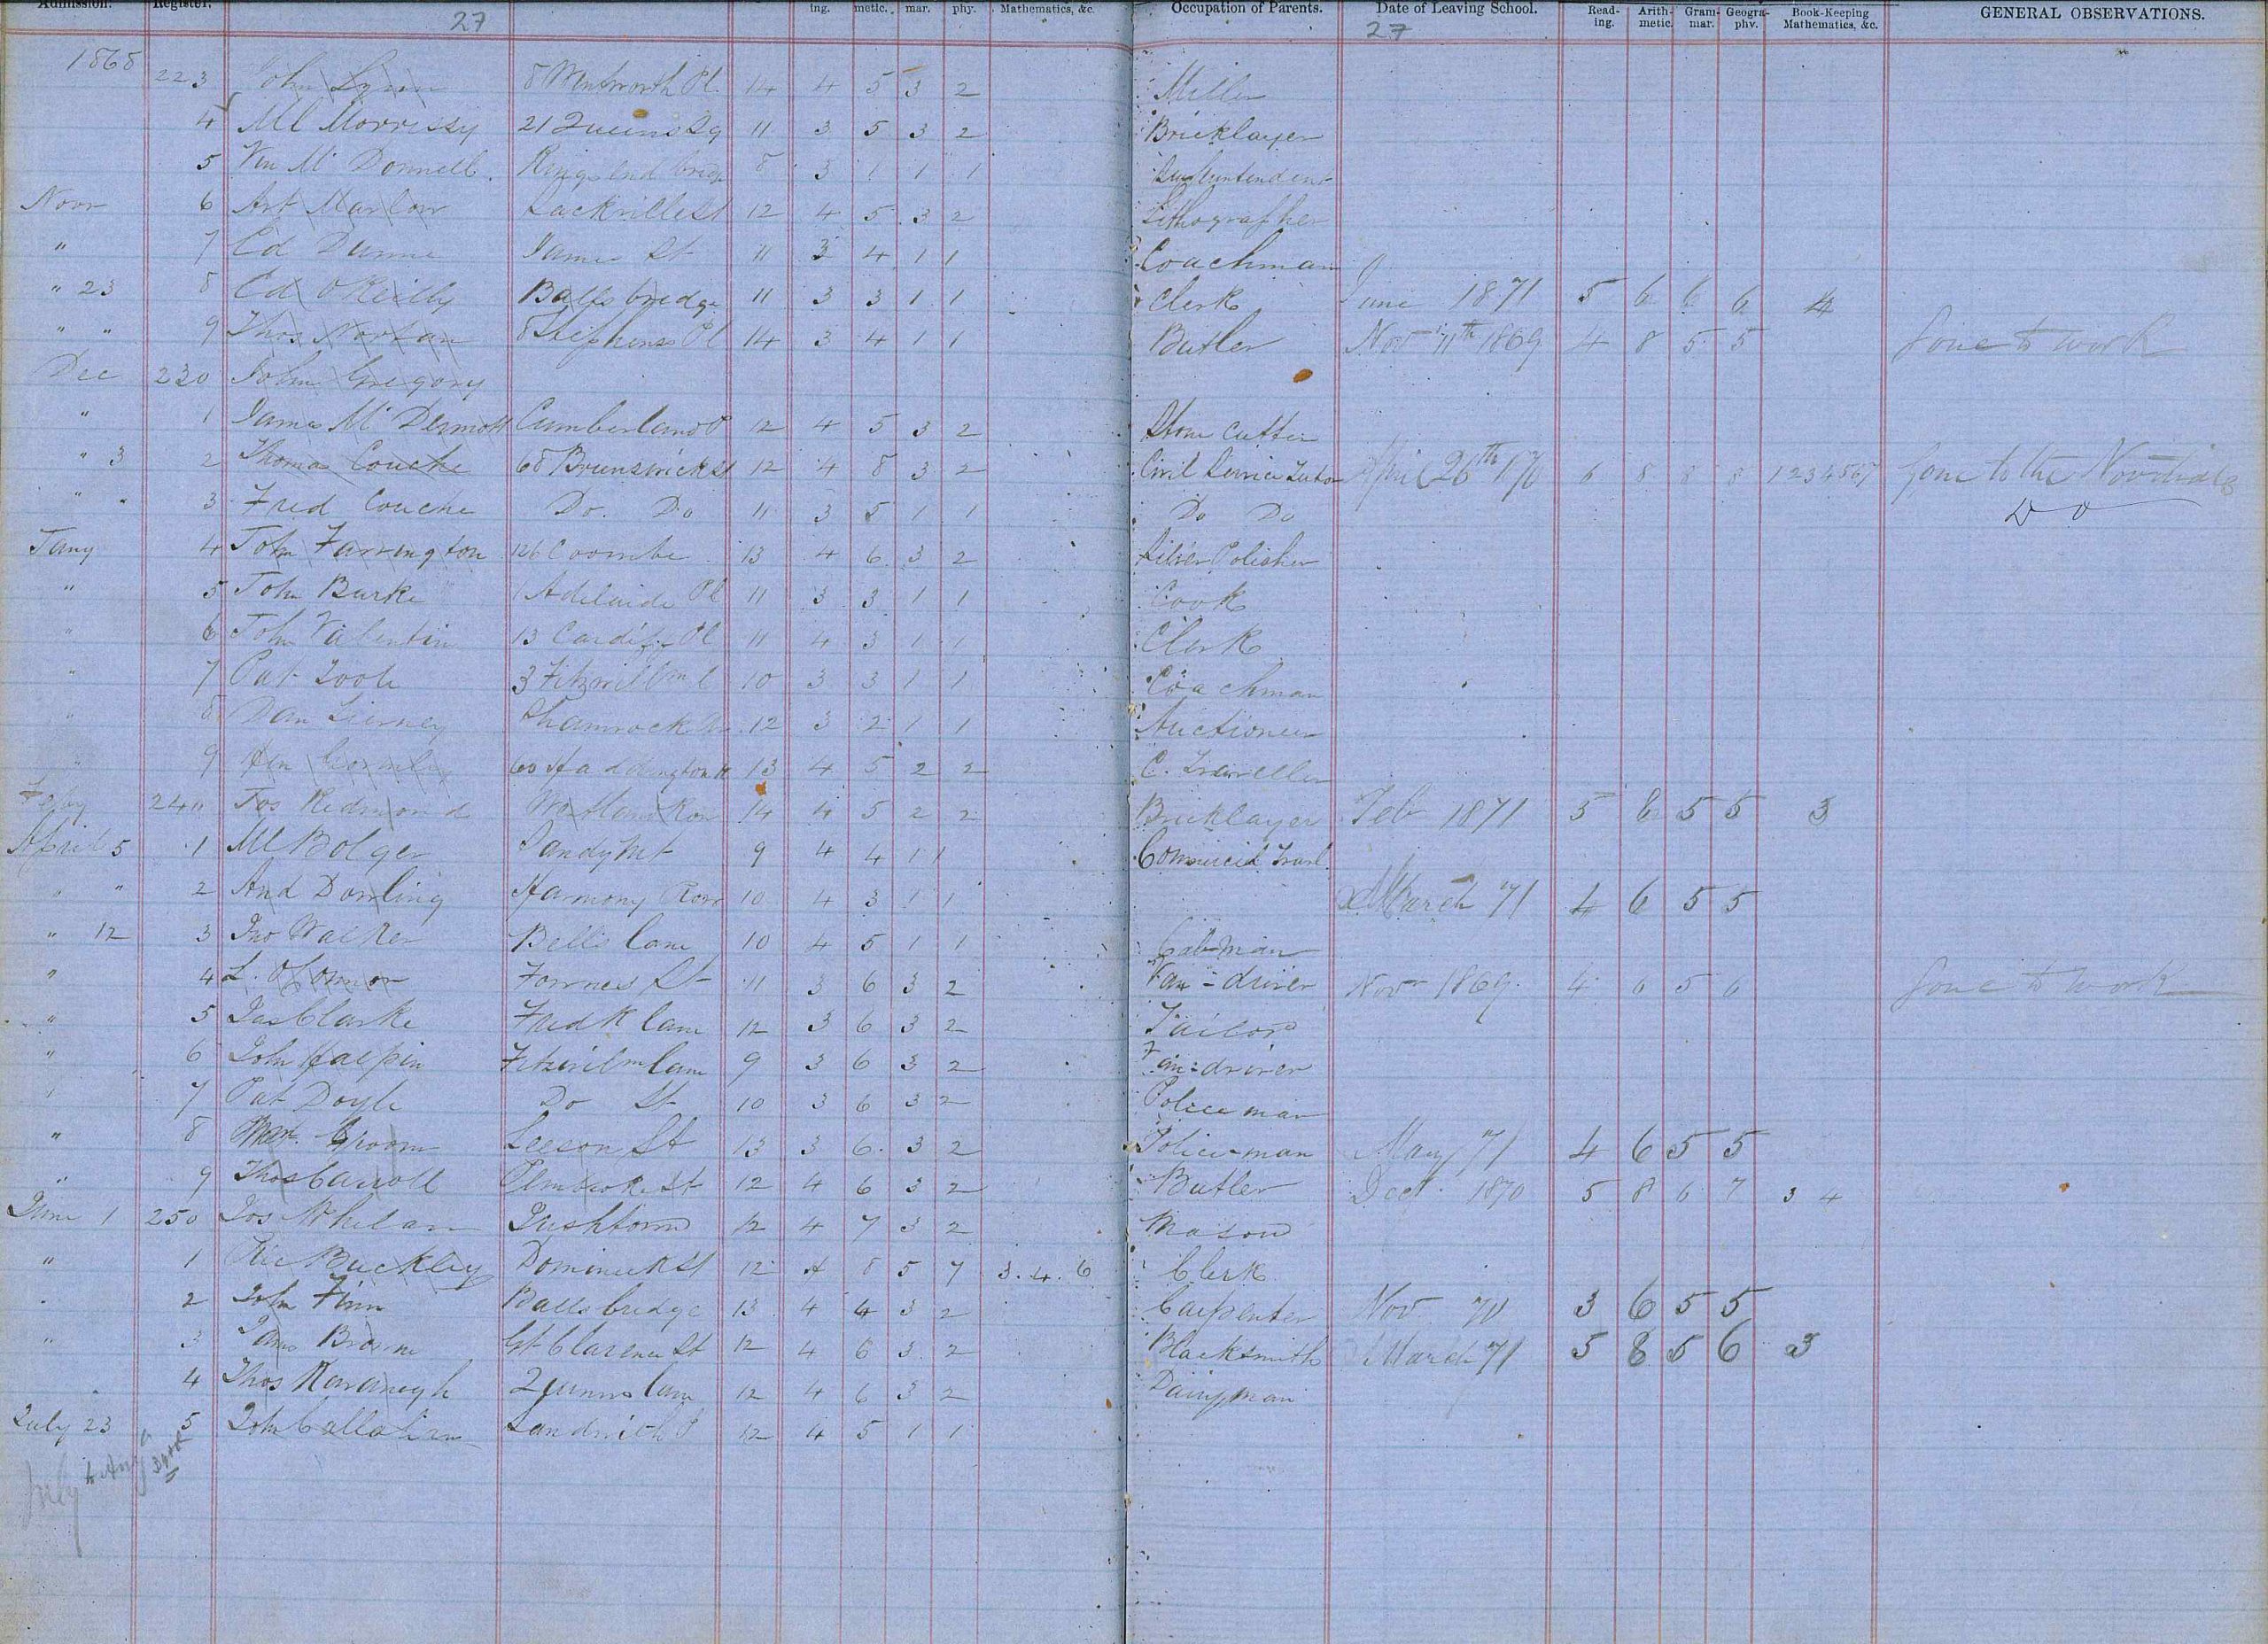 Admission. Register. ing. metic. mar. phy. Mathematics, &c. Occupation of Parents. Date of Leaving School. Read-ing. Arith-metic. Gram-mar. Geogra-phy. Book-Keeping Mathematics, &c. GENERAL OBSERVATIONS.
27 27
1868 223 John Lynn 8 Wentworth Pl. 14 4 5 3 2 Miller
4 Ml Morrissy 21 Queens Sq 11 3 5 3 2 Bricklayer
5 Wm Mc Donnell Ringsend bridge 8 3 1 1 1 Superintendent
Novr 6 Art Marlow Sackville St 12 4 5 3 2 Lithographer
" 7 Ed Dunne James St 11 3 4 1 1 Coachman
" 23 8 Ed OReilly Ballsbridge 11 3 3 1 1 Clerk June 1871 5 6 6 6 4
" " 9 Thos Nowlan 8 Stephens Pl 14 3 4 1 1 Butler Nov 11th 1869 4 8 5 5 Gone to work
Dec 230 John Gregory
" 1 James Mc Dermott Cumberland 12 4 5 3 2 Stone Cutter
" 3 2 Thomas Couche 68 Brunswick St 12 4 8 3 2 Civil Service Tutor April 26th 1870 6 8 8 8 1234567 gone to the Novitiate
" " 3 Fred Couche Do. Do 11 3 5 1 1 Do Do Do
Jany 4 John Farrington 126 Coombe 13 4 6 3 2 Silver Polisher
" 5 John Burke 1 Adelaide Pl 11 3 3 1 1 Cook
" 6 John Valentin 13 Cardiff Pl 11 4 3 1 1 Clerk
" 7 Pat Toole 3 Fitzwillm l 10 3 3 1 1 Coachman
" 8 Dan Tierney Shamrock 12 3 2 1 1 Auctioneer
" 9 Hen 60 Haddington R 13 4 5 2 2 C. Traveller
Feby 240 Jos Redmond Westland Row 14 4 5 2 2 Bricklayer Feb 1871 5 8 5 5 3
April 5 1 Ml Bolger Sandymt 9 4 4 1 1 Commercial Travl.
" " 2 And Dowling Harmony Row 10 4 3 1 1 March 71 4 6 5 5
" 12 3 Jno Walker Bells lane 10 4 5 1 1 Cabman
" 4 L. OConnor Fownes St 11 3 6 3 2 Van-driver Novr 1869. 4 6 5 6 Gone to work
" 5 Jas Clarke Fredk lane 12 3 6 3 2 Tailor
" 6 John Halpin Fitzwilm lane 9 3 6 3 2 Van-driver
" 7 Pat Doyle Do St 10 3 6 3 2 Policeman
" 8 Groom Leeson St 13 3 6 3 2 Police-man May 71 4 6 5 5
" 9 Thos Carroll Pembroke St 12 4 6 3 2 Butler Decr 1870 5 8 6 7 3 4
June 1 250 Jos Whelan Irishtown 12 4 7 3 2 Mason
" 1 Ric Buckley Dominick St 12 4 8 5 7 3. 4. 6 Clerk
" 2 John Finn Ballsbridge 13 4 4 3 2 Carpenter Nov 70 3 6 5 5
" 3 James Browne Gt Clarence St 12 4 6 3 2 Blacksmith March 71 5 8 5 6 3
4 Thos Kavanagh Quinns lane 12 4 6 3 2 Dairyman
July 23 5 John Callahan Sandwith S 12 4 5 1 1
July to Aug